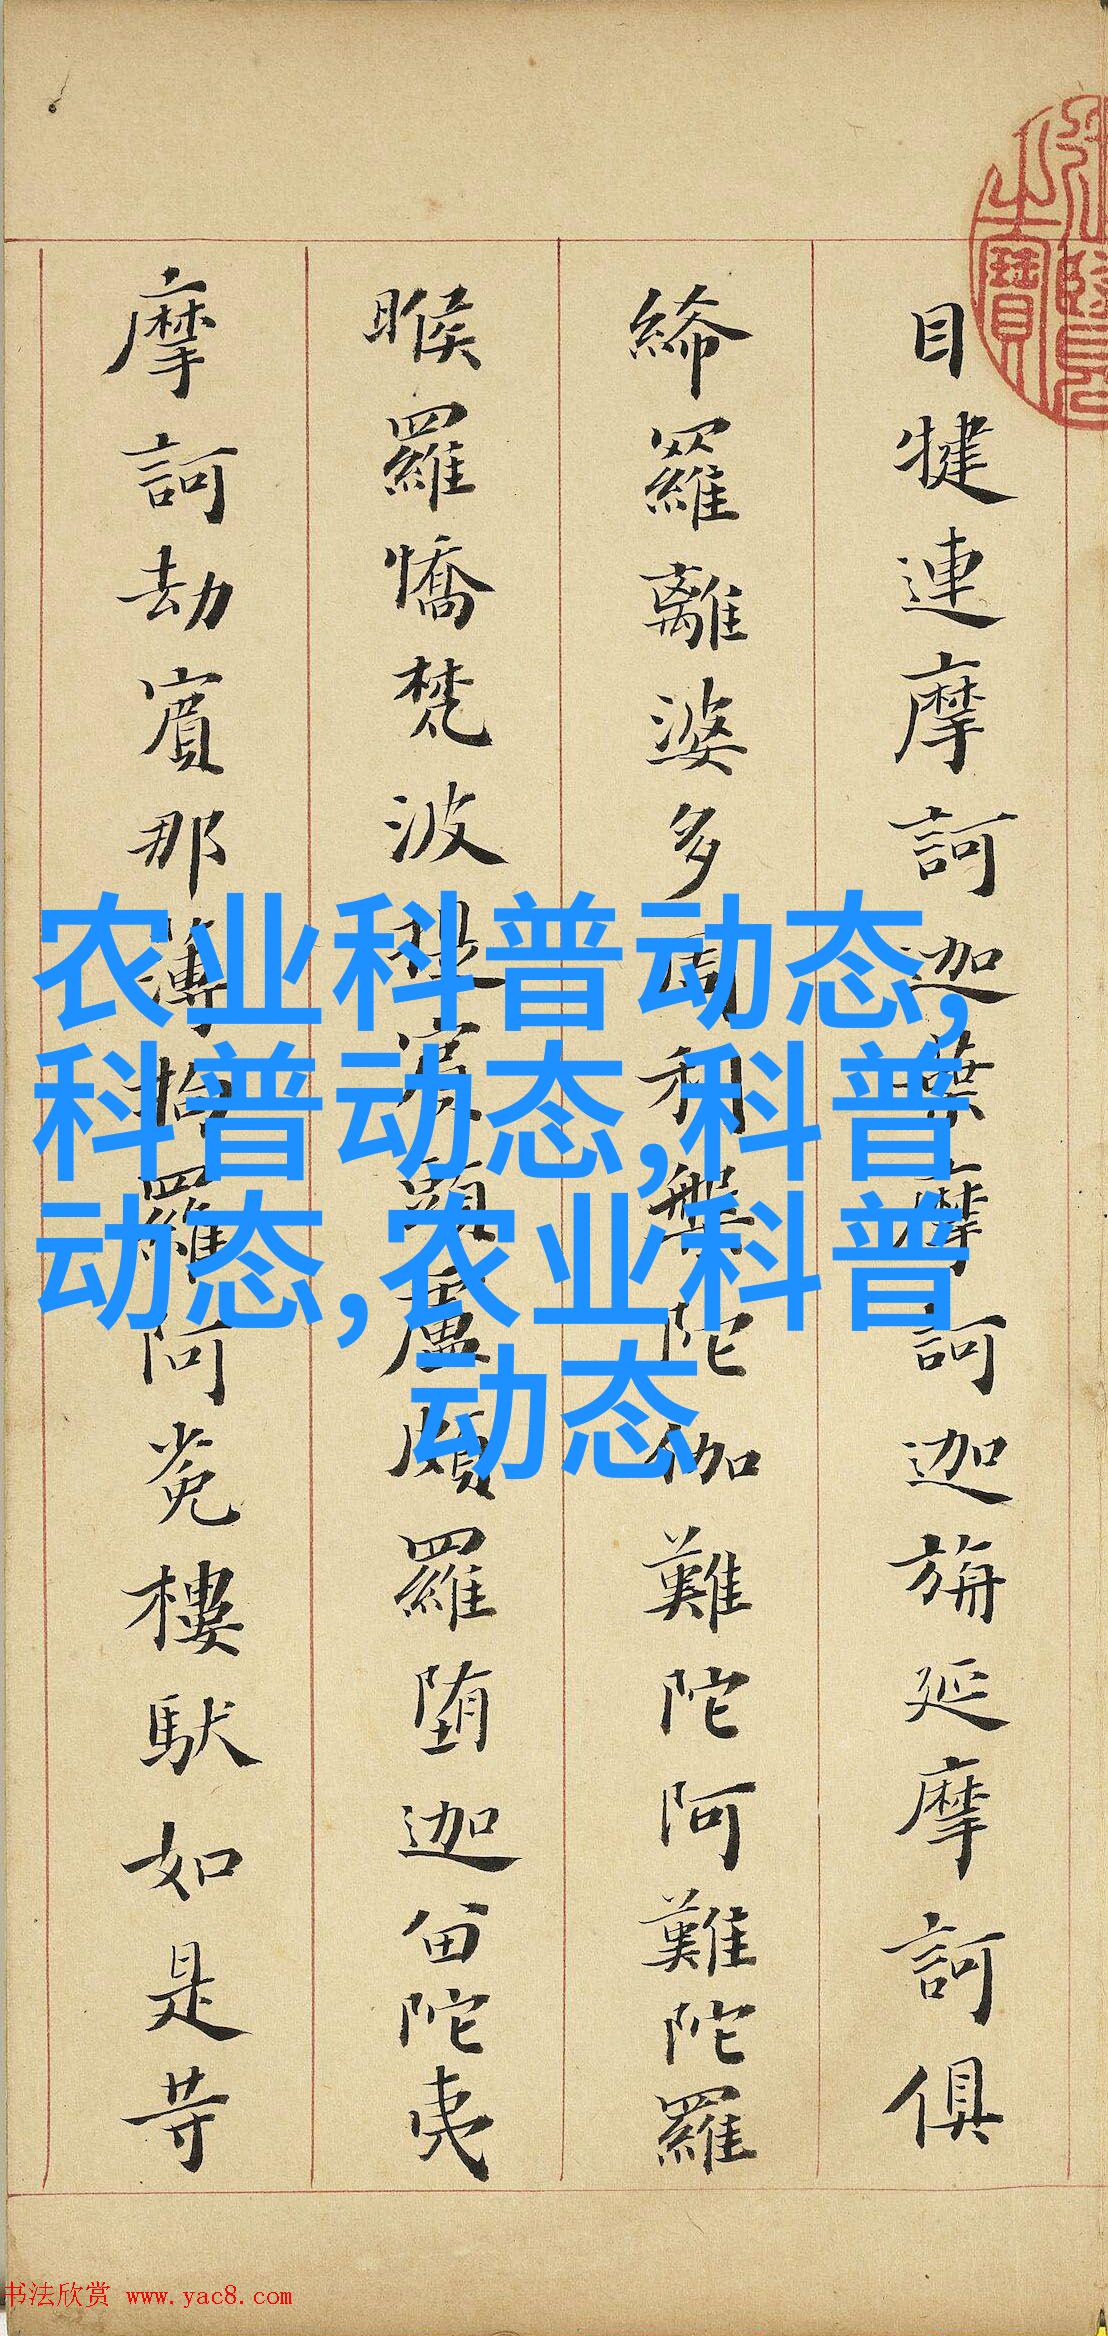 目犍連摩訶迦葉摩訶迦旃延摩訶俱
絺羅離婆多周利槃陀伽難陀阿難陀羅
睺羅憍梵波提賓頭盧頗羅堕迦留陀夷
摩訶劫賓那薄拘羅阿㝹樓馱如是等
之寶
农业科普动态,
科普动态,科普
动态,农业科普
动态
书法欣赏 www.yac8.com